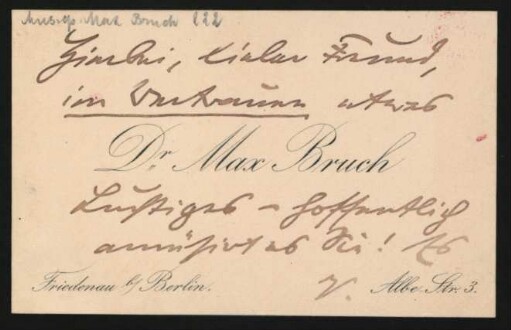 Musiker Max Bruch 122
Hierbei, lieber Freund,
im Vertrauen etwas
Dr. Max Bruch
Lustiges – hoffentlich
amüsirt es Sie!
Friedenau b/ Berlin. Albe-Str. 3.